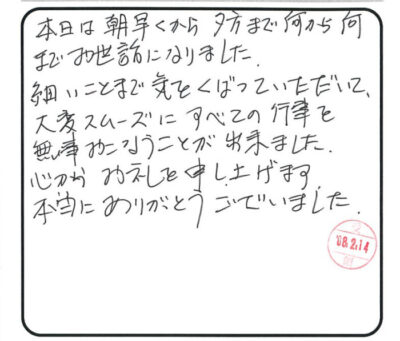 本日は朝早くから夕方まで何から何
までお世話になりました.
細いことまで気をくばっていただいて、
大変スムーズにすべての行事を
無事おこなうことが出来ました.
心からお礼を申し上げます.
本当にありがとうございました.
'08.2.14